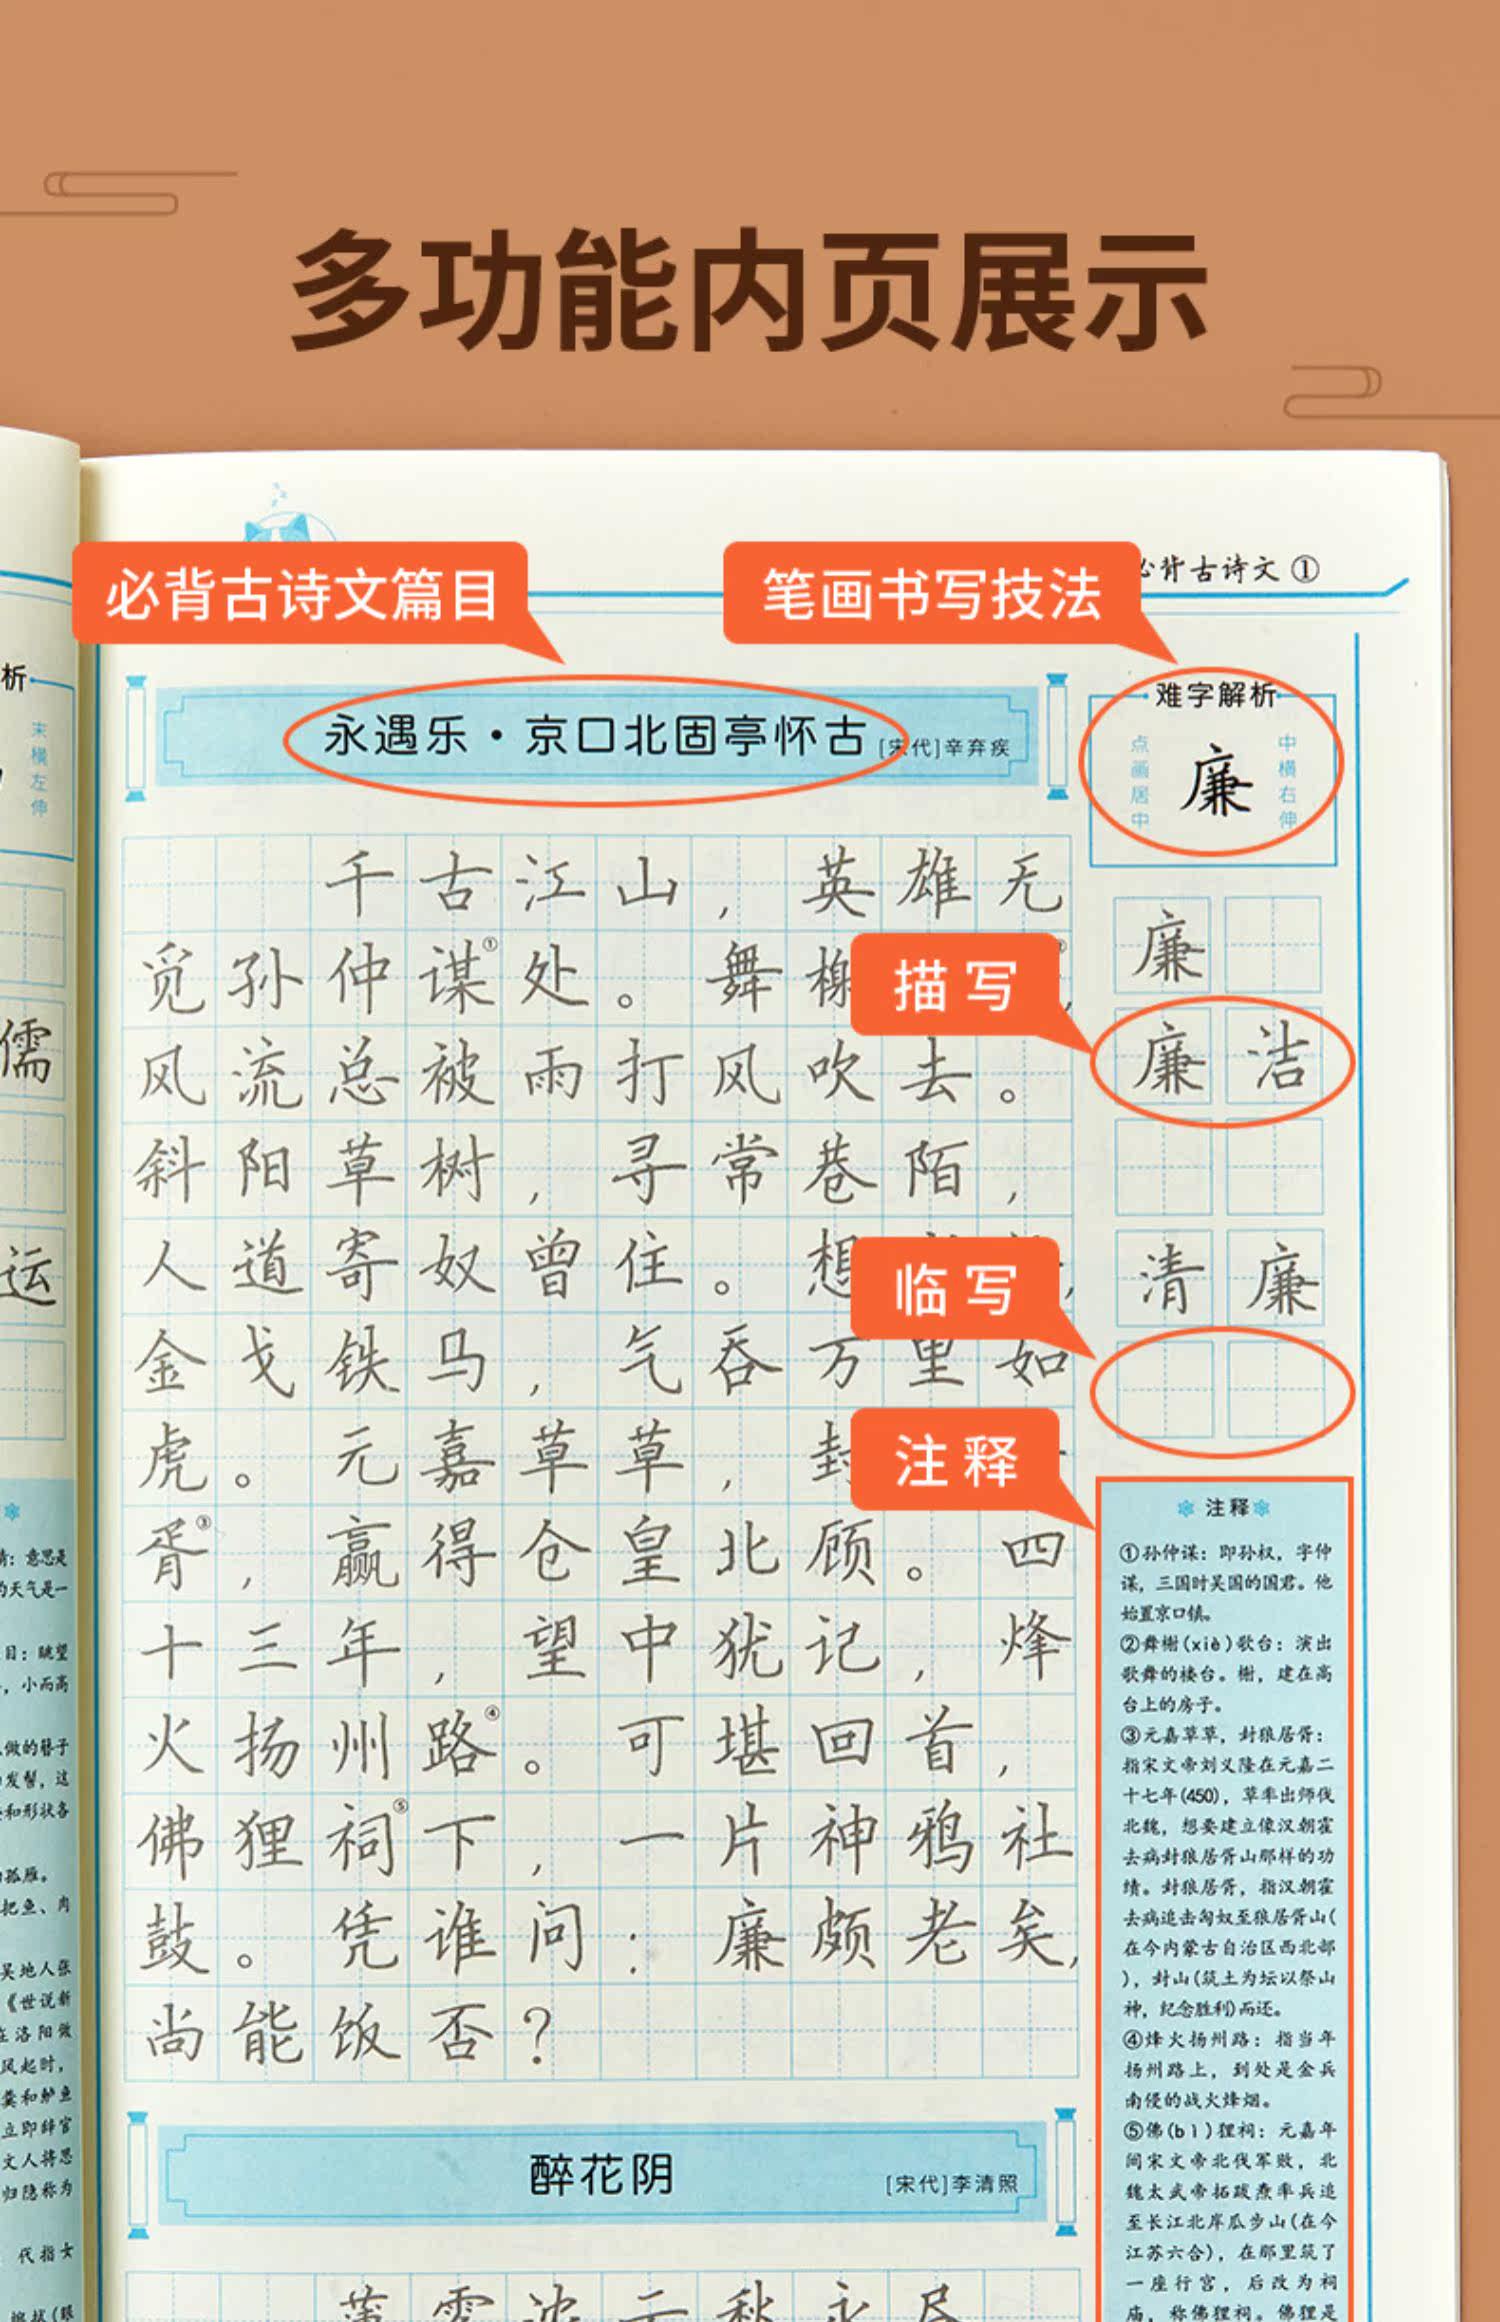 多功能内页展示
必背古诗文篇目
笔画书写技法
背古诗文①
永遇乐·京口北固亭怀古 [宋代]辛弃疾
千古江山，英雄无
觅孙仲谋①处。舞榭
风流总被雨打风吹去。
斜阳草树，寻常巷陌，
人道寄奴曾住。想
金戈铁马，气吞万里如
虎。元嘉草草，封
胥③，赢得仓皇北顾。四
十三年，望中犹记，烽
火扬州路④。可堪回首，
佛狸祠⑤下，一片神鸦社
鼓。凭谁问：廉颇老矣，
尚能饭否？
醉花阴 [宋代]李清照
难字解析
点画居中
廉
中横右伸
廉
描写
廉洁
清廉
临写
注释
注释
①孙仲谋：即孙权，字仲
谋，三国时吴国的国君。他
始置京口镇。
②舞榭(xiè)歌台：演出
歌舞的楼台。榭，建在高
台上的房子。
③元嘉草草，封狼居胥：
指宋文帝刘义隆在元嘉二
十七年(450)，草率出师伐
北魏，想要建立像汉朝霍
去病封狼居胥山那样的功
绩。封狼居胥，指汉朝霍
去病追击匈奴至狼居胥山(
在今内蒙古自治区西北部
)，封山(筑土为坛以祭山
神，纪念胜利)而还。
④烽火扬州路：指当年
扬州路上，到处是金兵
南侵的战火烽烟。
⑤佛(bì)狸祠：元嘉年
间宋文帝北伐军败，北
魏太武帝拓跋焘率兵追
至长江北岸瓜步山(在今
江苏六合)，在那里筑了
一座行宫，后改为祠
庙，称佛狸祠。佛狸是
析
末横左伸
儒
运
情：意思是
的天气是一
目：眺望
，小而高
做的簪子
发髻，这
和形状各
孤雁。
把鱼、肉
吴地人张
《世说新
在洛阳做
风起时，
羹和鲈鱼
立即辞官
文人将思
归隐称为
代指女